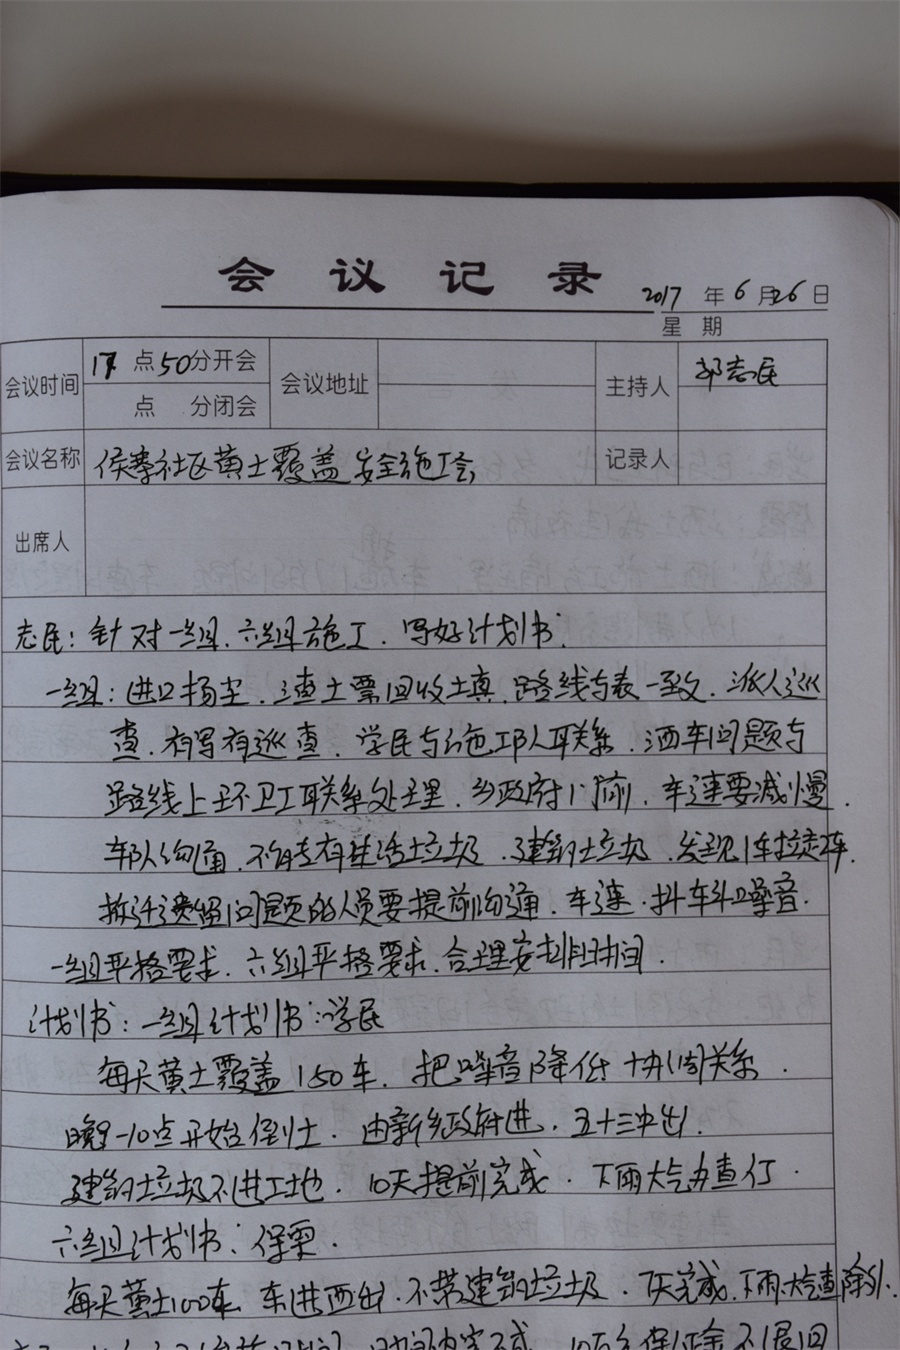 会议记录
2017年6月26日
星期
会议时间 17点50分开会 会议地址 主持人 郭志民
点 分闭会
会议名称 侯寨社区黄土覆盖安全施工会 记录人
出席人
志民：针对一组、六组施工，写好计划书.
一组：进口扬尘，渣土票回收填，路线与表一致，派人巡
查，有写有巡查，学民与施工队联系，洒车问题与
路线上环卫工联系处理，乡政府门前，车速要减慢.
车队沟通，不能有生活垃圾，建筑垃圾，发现1车拉走2车.
拆迁遗留问题的人员要提前沟通，车速，抖车斗噪音.
一组严格要求，六组严格要求，合理安排时间.
计划书：一组计划书：学民
每天黄土覆盖150车，把噪音降低 协调关系.
晚10点开始倒土，由新乡政府进，五十三中出.
建筑垃圾不进工地，10天提前完成，下雨大气
六组计划书：保栗.
每天黄土100车 东进西出，不带建筑垃圾，天完成，下雨大气查除外.